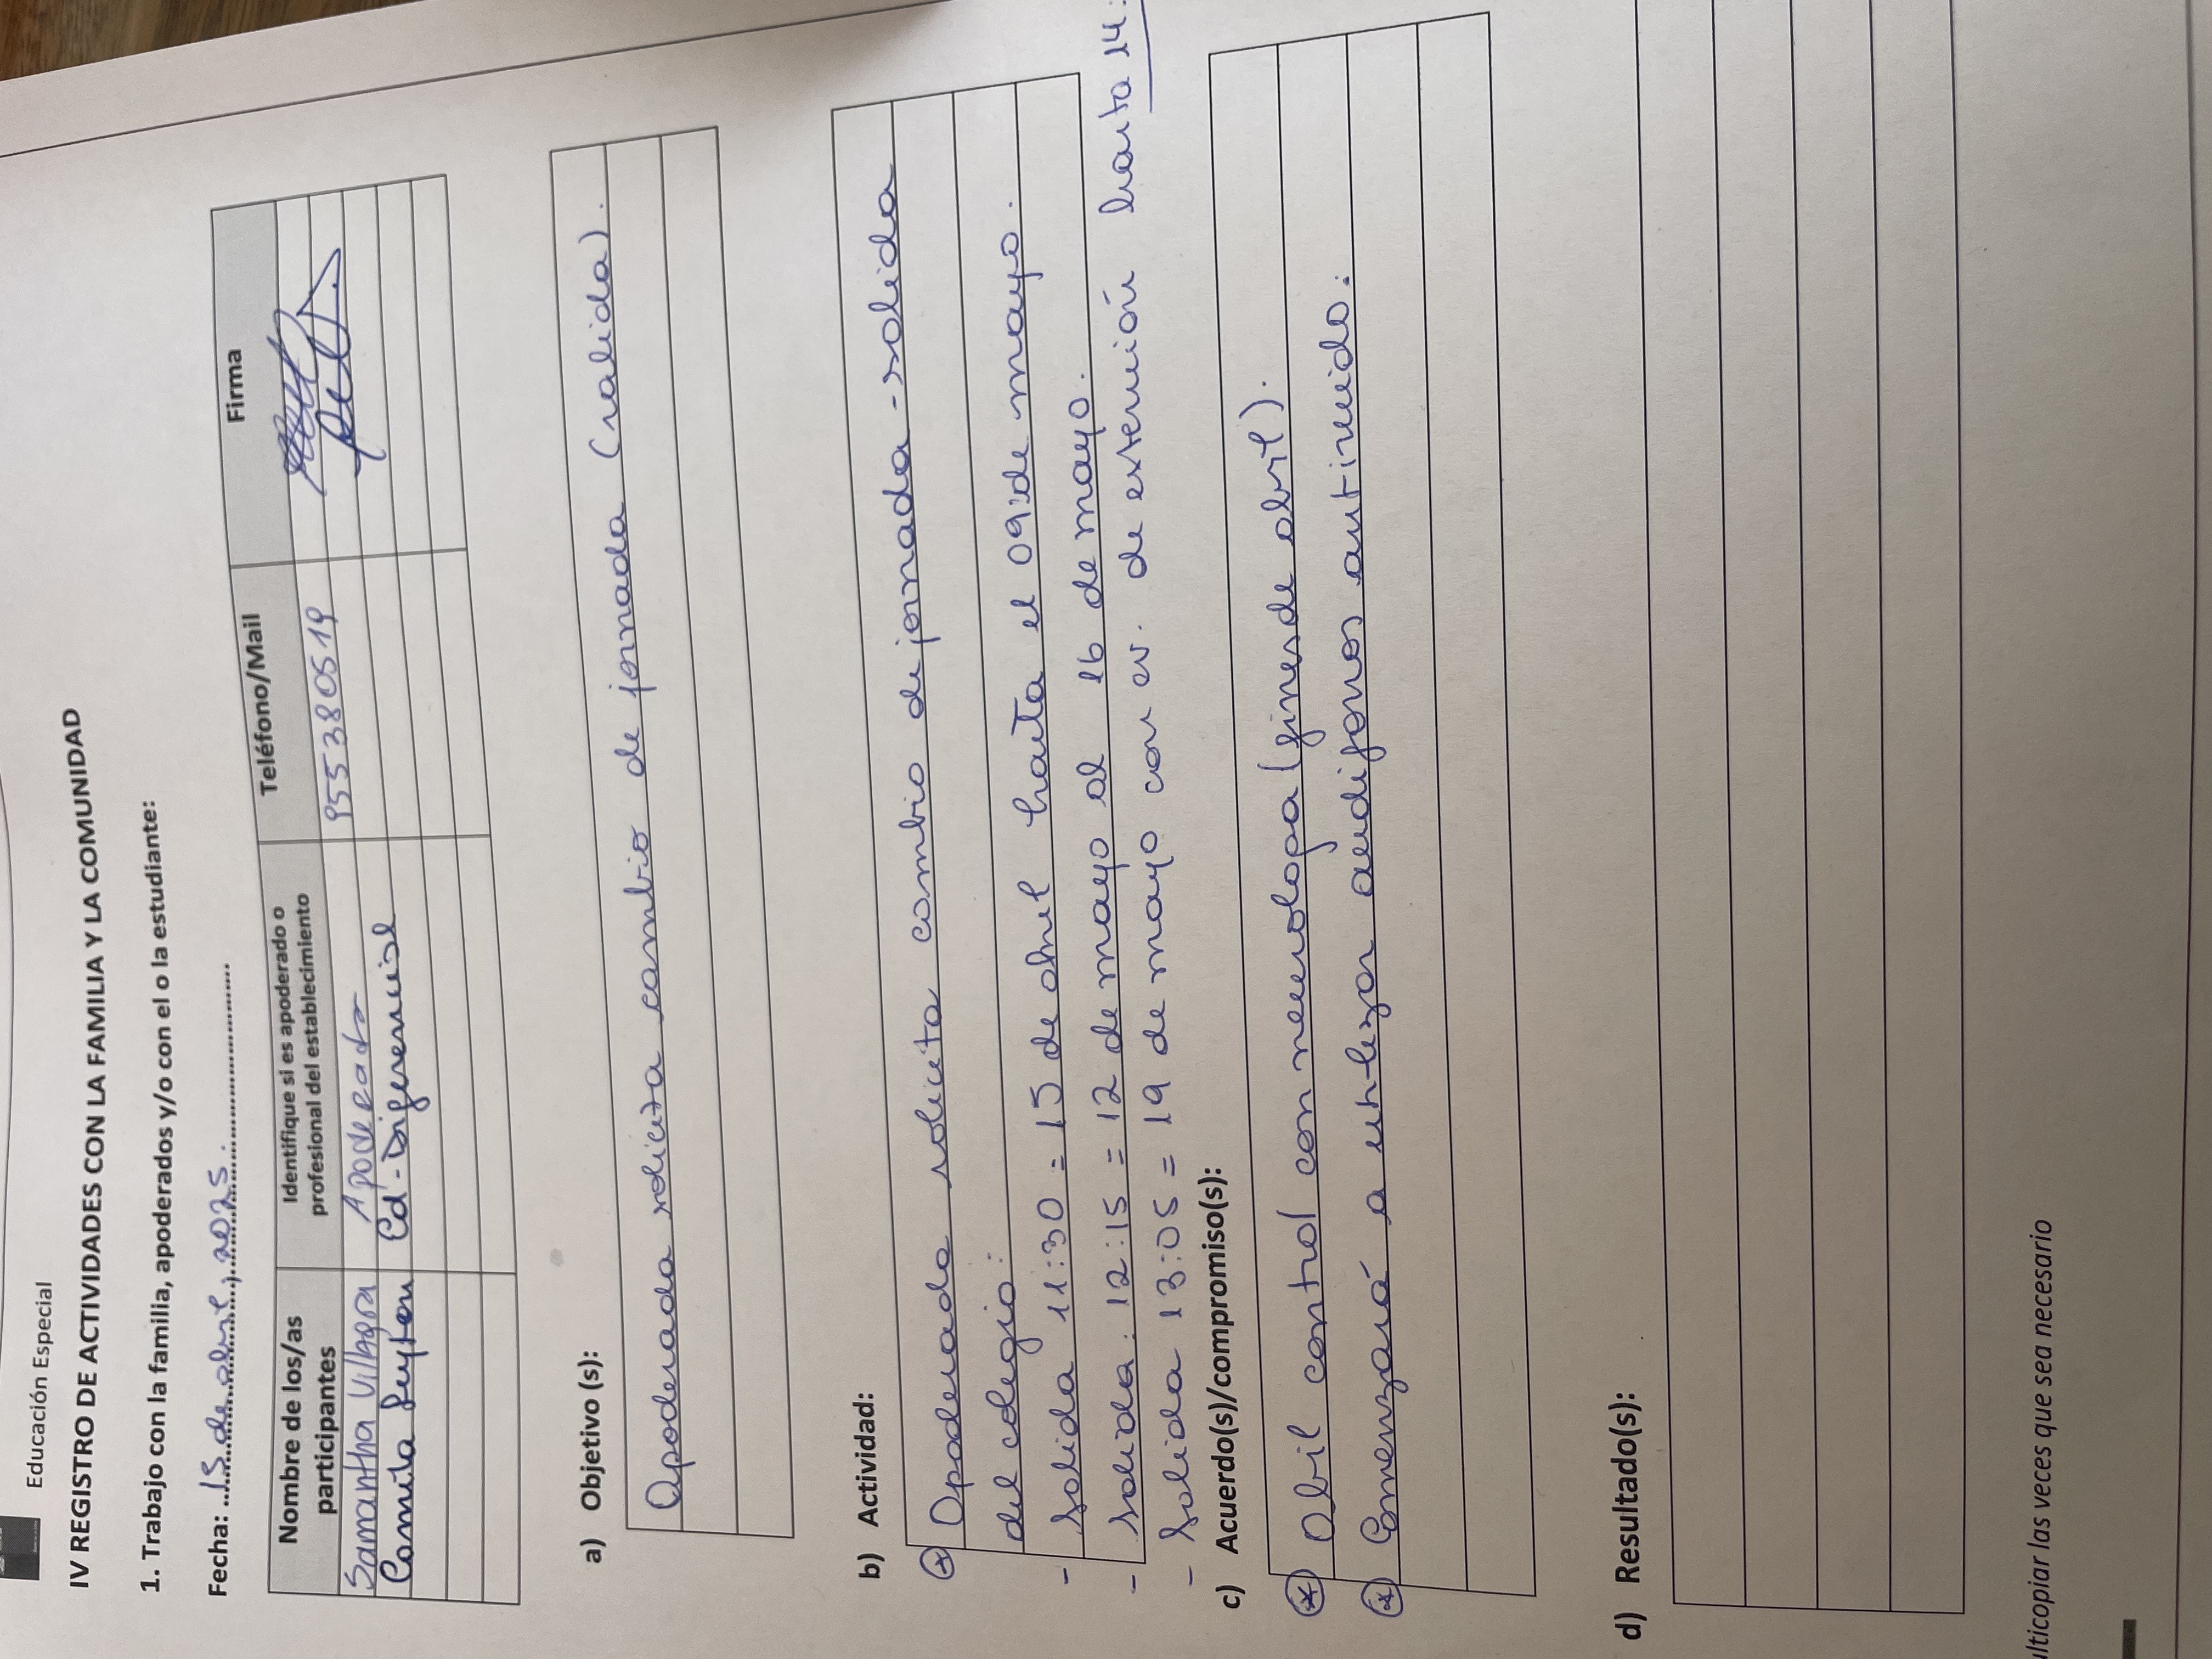 Educación Especial
IV REGISTRO DE ACTIVIDADES CON LA FAMILIA Y LA COMUNIDAD
1. Trabajo con la familia, apoderados y/o con el o la estudiante:
Fecha: 15 de abril, 2025.
Nombre de los/as participantes
Identifique si es apoderado o profesional del establecimiento
Teléfono/Mail
Firma
Samantha Villagra Apoderada 955380519
Camila Ed. Diferencial
a) Objetivo (s):
Apoderada solicita cambio de jornada (salida).
b) Actividad:
Apoderada solicita cambio de jornada - salida
del colegio:
- Salida 11:30 = 15 de abril hasta el 09 de mayo.
- Salida: 12:15 = 12 de mayo al 16 de mayo.
- Salida 13:05 = 19 de mayo con ev. de extensión hasta 14:
c) Acuerdo(s)/compromiso(s):
Abril control con neurologa (fines de abril).
Comenzará a utilizar audifonos antiruido.
d) Resultado(s):
lticopiar las veces que sea necesario